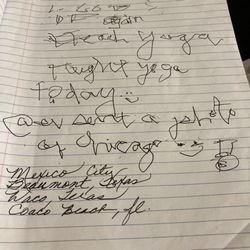 Teach Yoga
taught yoga
today
sent a photo
of Chicago
Mexico City
Beaumont, Texas
Waco, Texas
Cocoa Beach, fl.